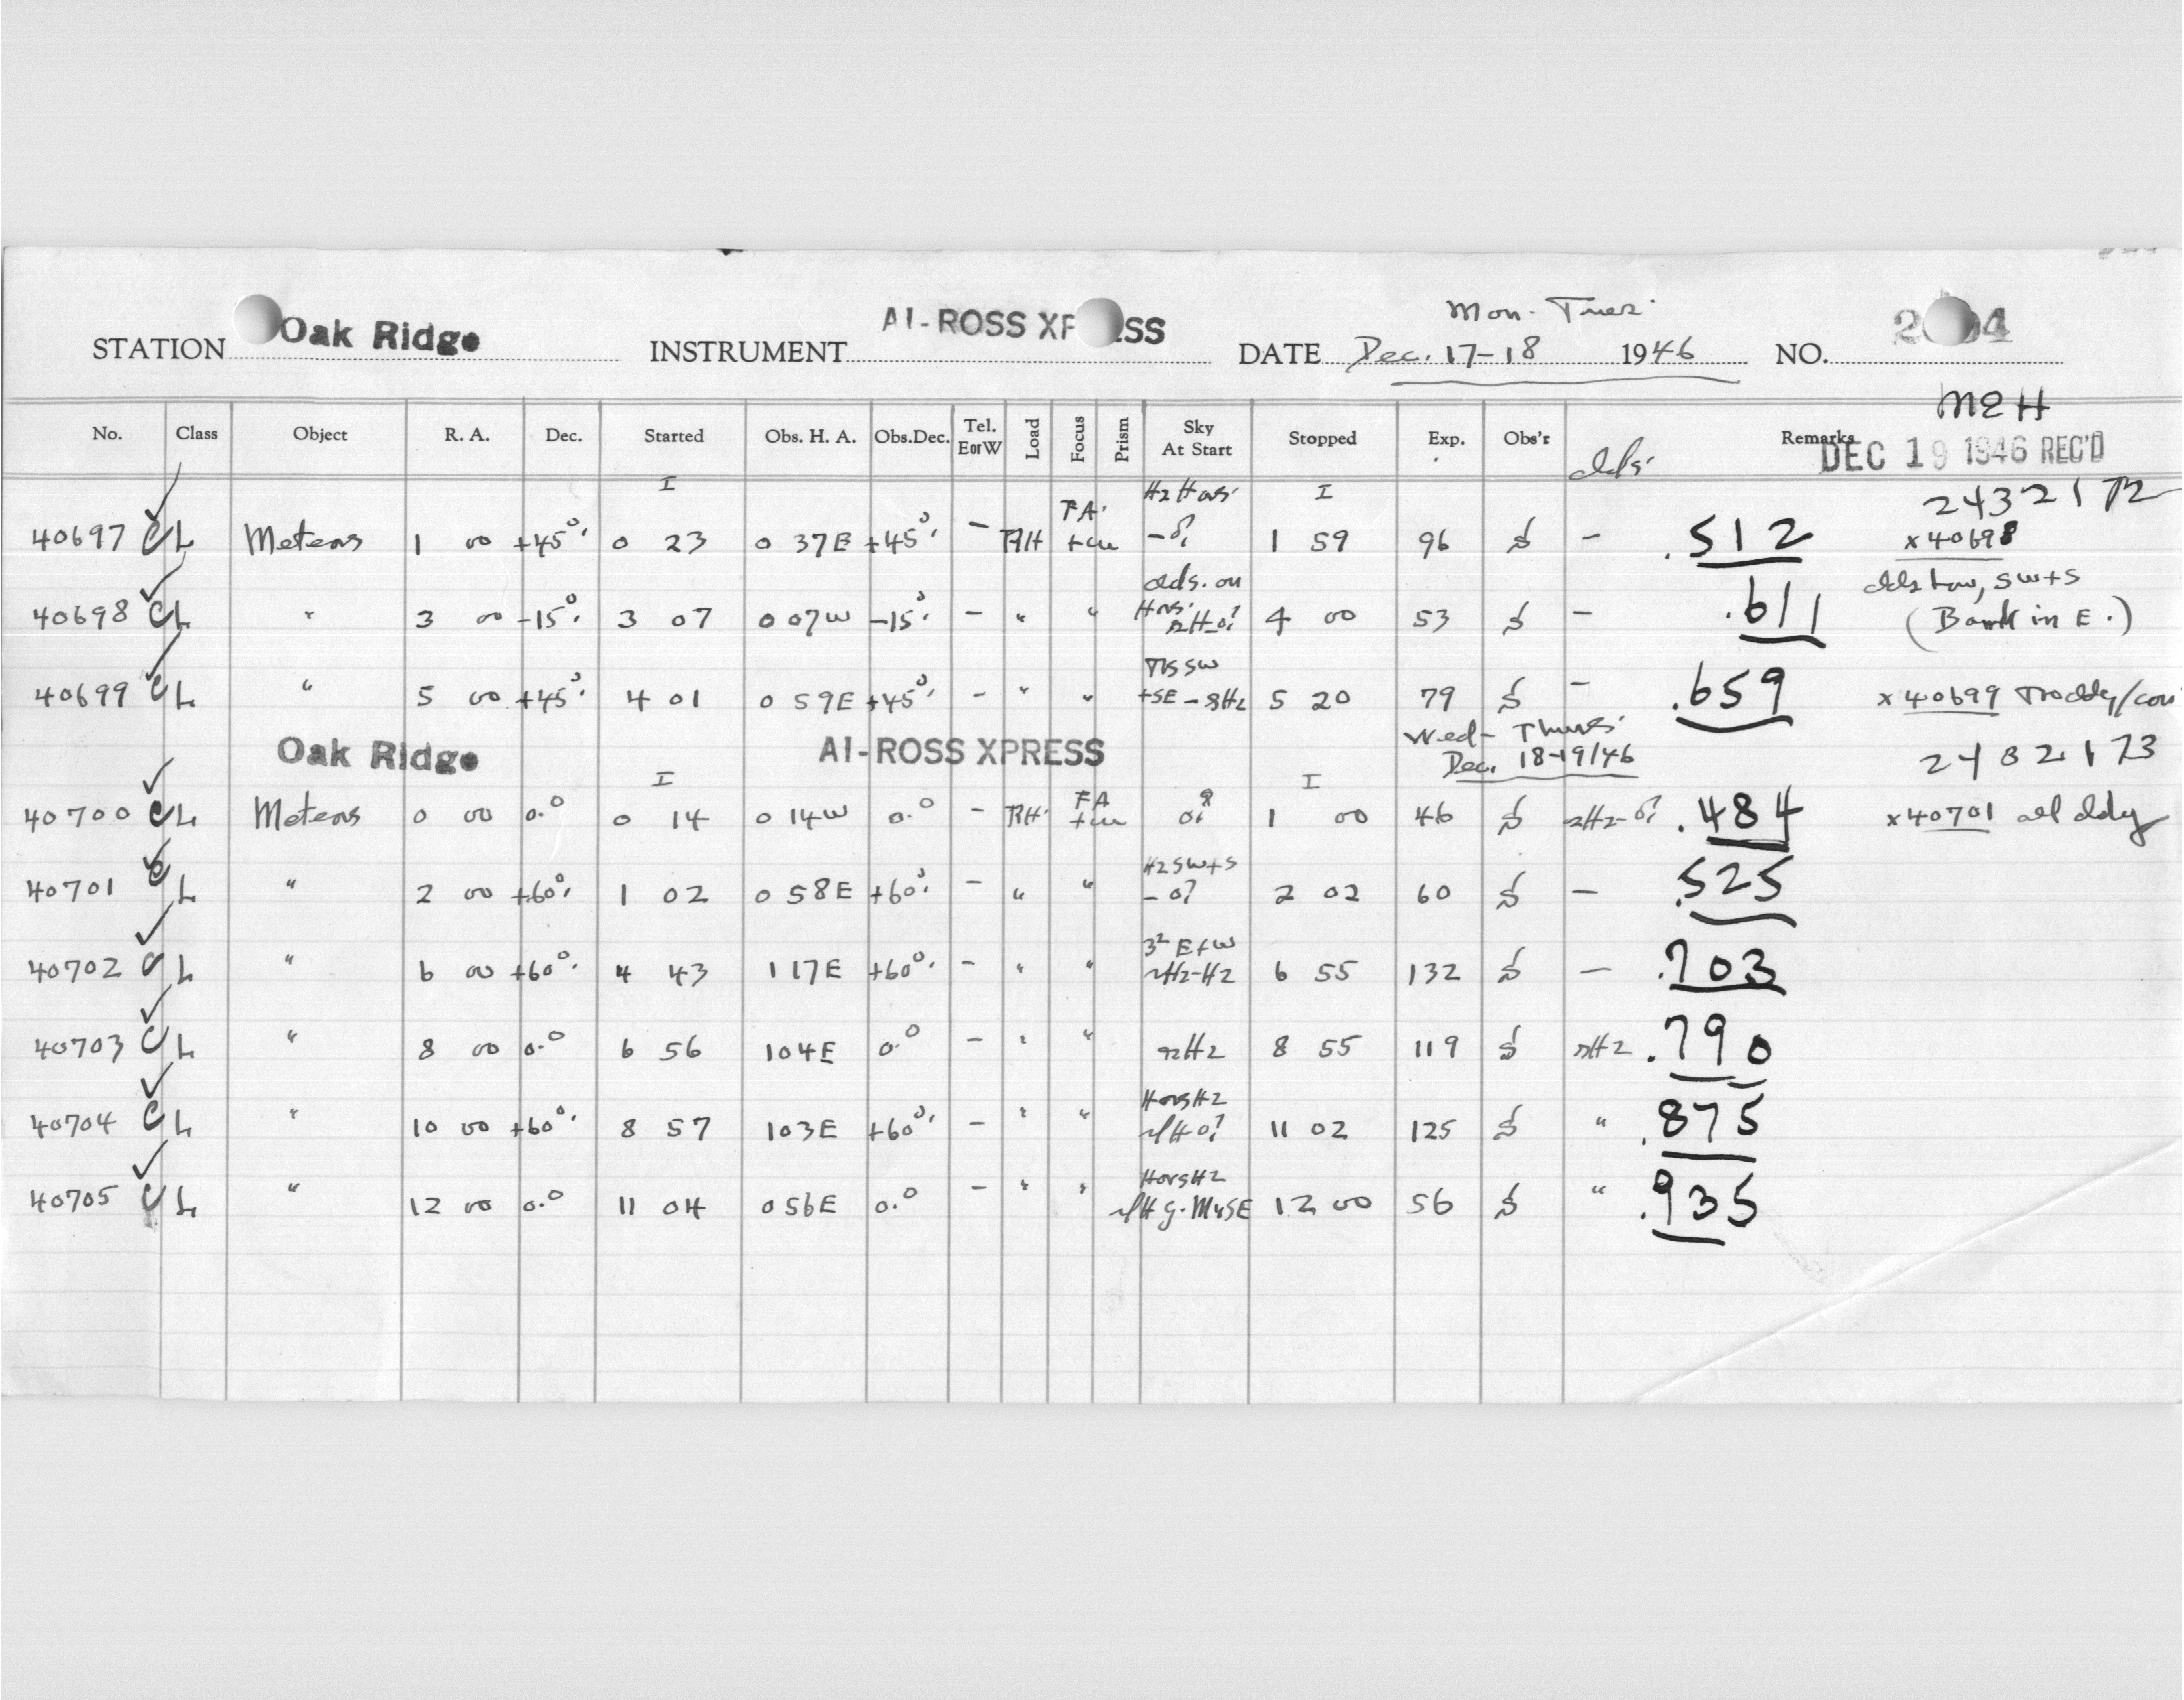 Mon. Tues.
STATION Oak Ridge INSTRUMENT AI-ROSS XP SS DATE Dec. 17-18 1946 NO. 2 4
MEH
No. Class Object R. A. Dec. Started Obs. H. A. Obs.Dec. Tel. EorW Load Focus Prism Sky At Start Stopped Exp. Obs'r Remarks
DEC 19 1946 REC'D
I I 2432172
40697 CL Meteors 1 00 +45° 0 23 0 37E +45° - RH FA - 1 59 96 - .512 x40698
40698 CL " 3 00 -15° 3 07 0 07W -15° - " " 4 00 53 - .611 SW+S
(Bank in E.)
40699 CL " 5 00 +45° 4 01 0 59E +45° - " " SW +SE 5 20 79 - .659 x40699
Oak Ridge AI-ROSS XPRESS Wed-Thurs. Dec. 18-19/46 2432173
I I
40700 CL Meteors 0 00 0.° 0 14 0 14W 0.° - RH FA 1 00 46 .484 x40701 all
40701 CL " 2 00 +60° 1 02 0 58E +60° - " " Hz SW+S 2 02 60 - .525
40702 CL " 6 00 +60° 4 43 1 17E +60° - " " E+W 6 55 132 - .703
40703 CL " 8 00 0.° 6 56 1 04E 0.° - " " 8 55 119 .790
40704 CL " 10 00 +60° 8 57 1 03E +60° - " " 11 02 125 " .875
40705 CL " 12 00 0.° 11 04 0 56E 0.° - " " 12 00 56 " .935